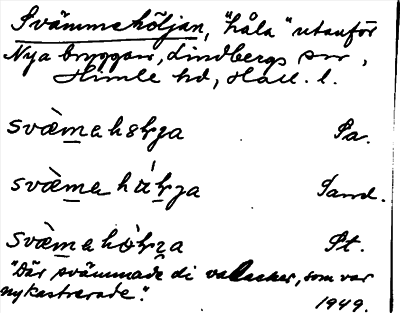 Svämmehöljan, "håla" utanför
Nya bryggan, Lindbergs sn,
Himle hd, Hall. l.
svæ̀mehɵḷja Sa.
svæ̀meha Sand.
svæ̀meh St.
"Där svämmade di valacker, som var
nykastrerade."
1949.